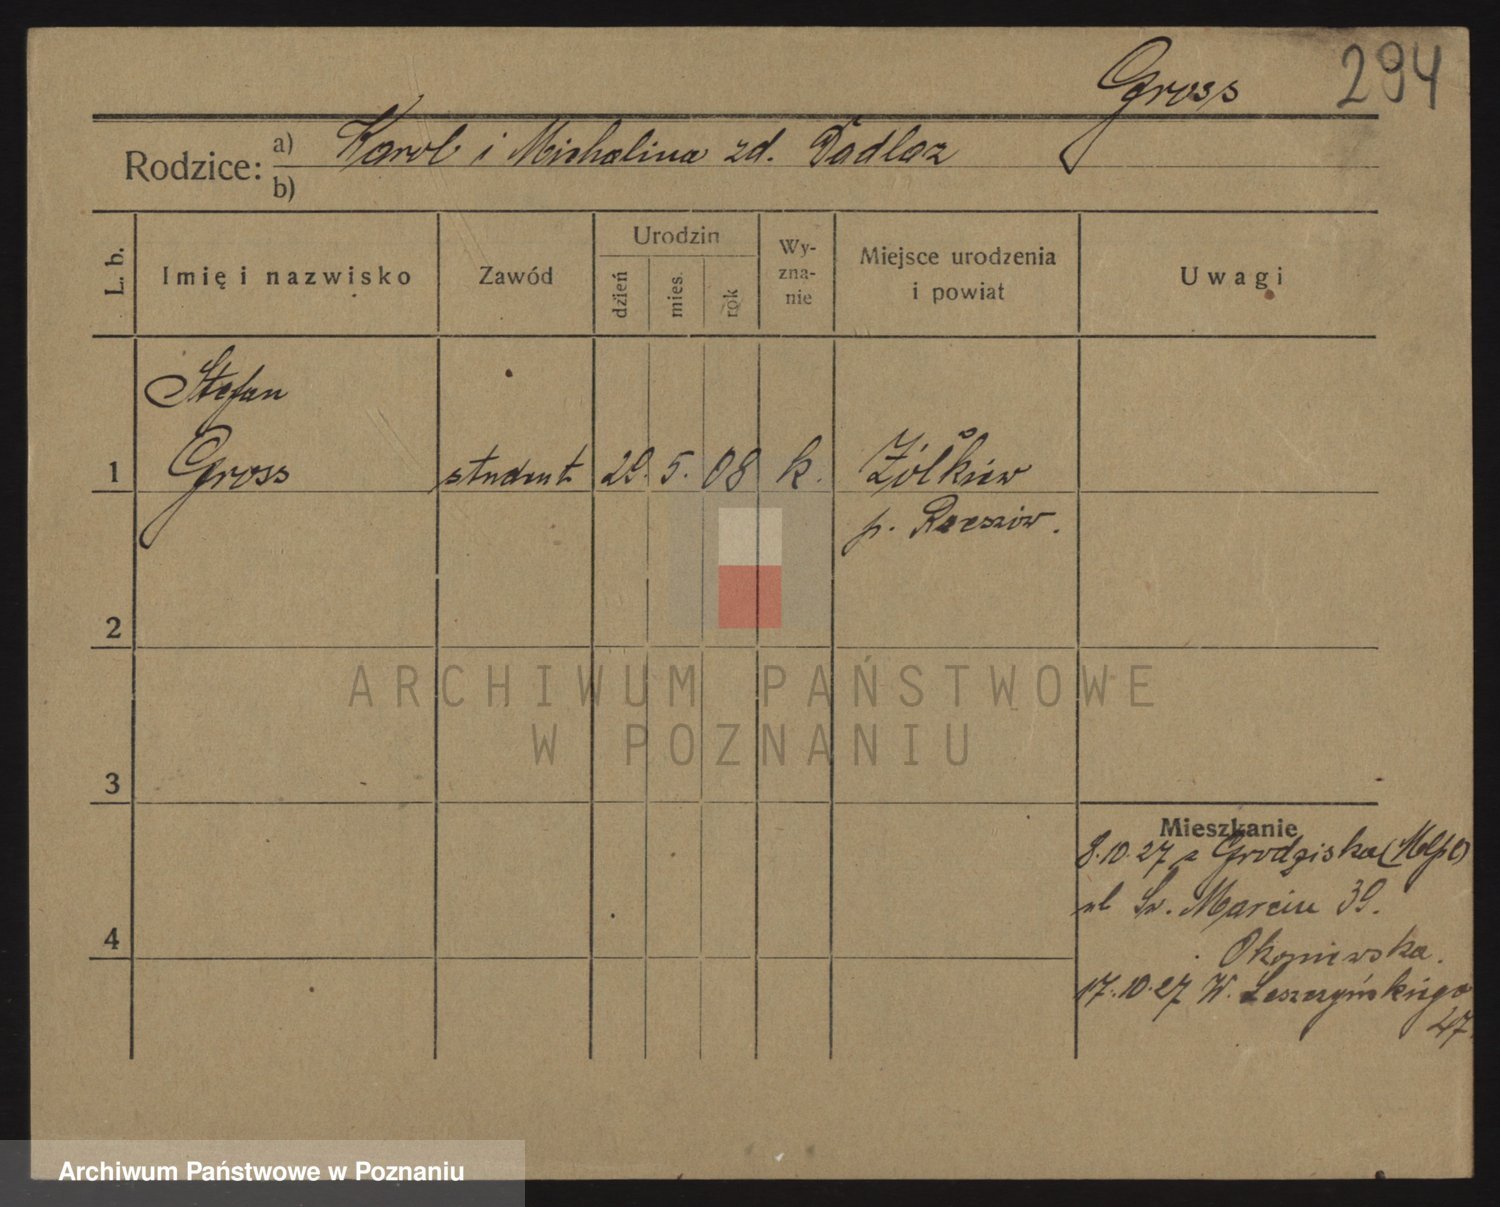 Gross 294
Rodzice: a) Karol i Michalina zd. Padlaz
b)
L. b. Imię i nazwisko Zawód Urodzin dzień mies. rok Wy-zna-nie Miejsce urodzenia i powiat Uwagi
Stefan
1 Gross student 29. 5. 08 k. Żółkiew
p. Rzeszów.
2
ARCHIWUM PAŃSTWOWE
W POZNANIU
3
Mieszkanie
8.10.27 z Grodziska (Wlkp)
ul Św. Marcin 39.
4
17.10.27 W. Leszczyńskiego
47.
Archiwum Państwowe w Poznaniu